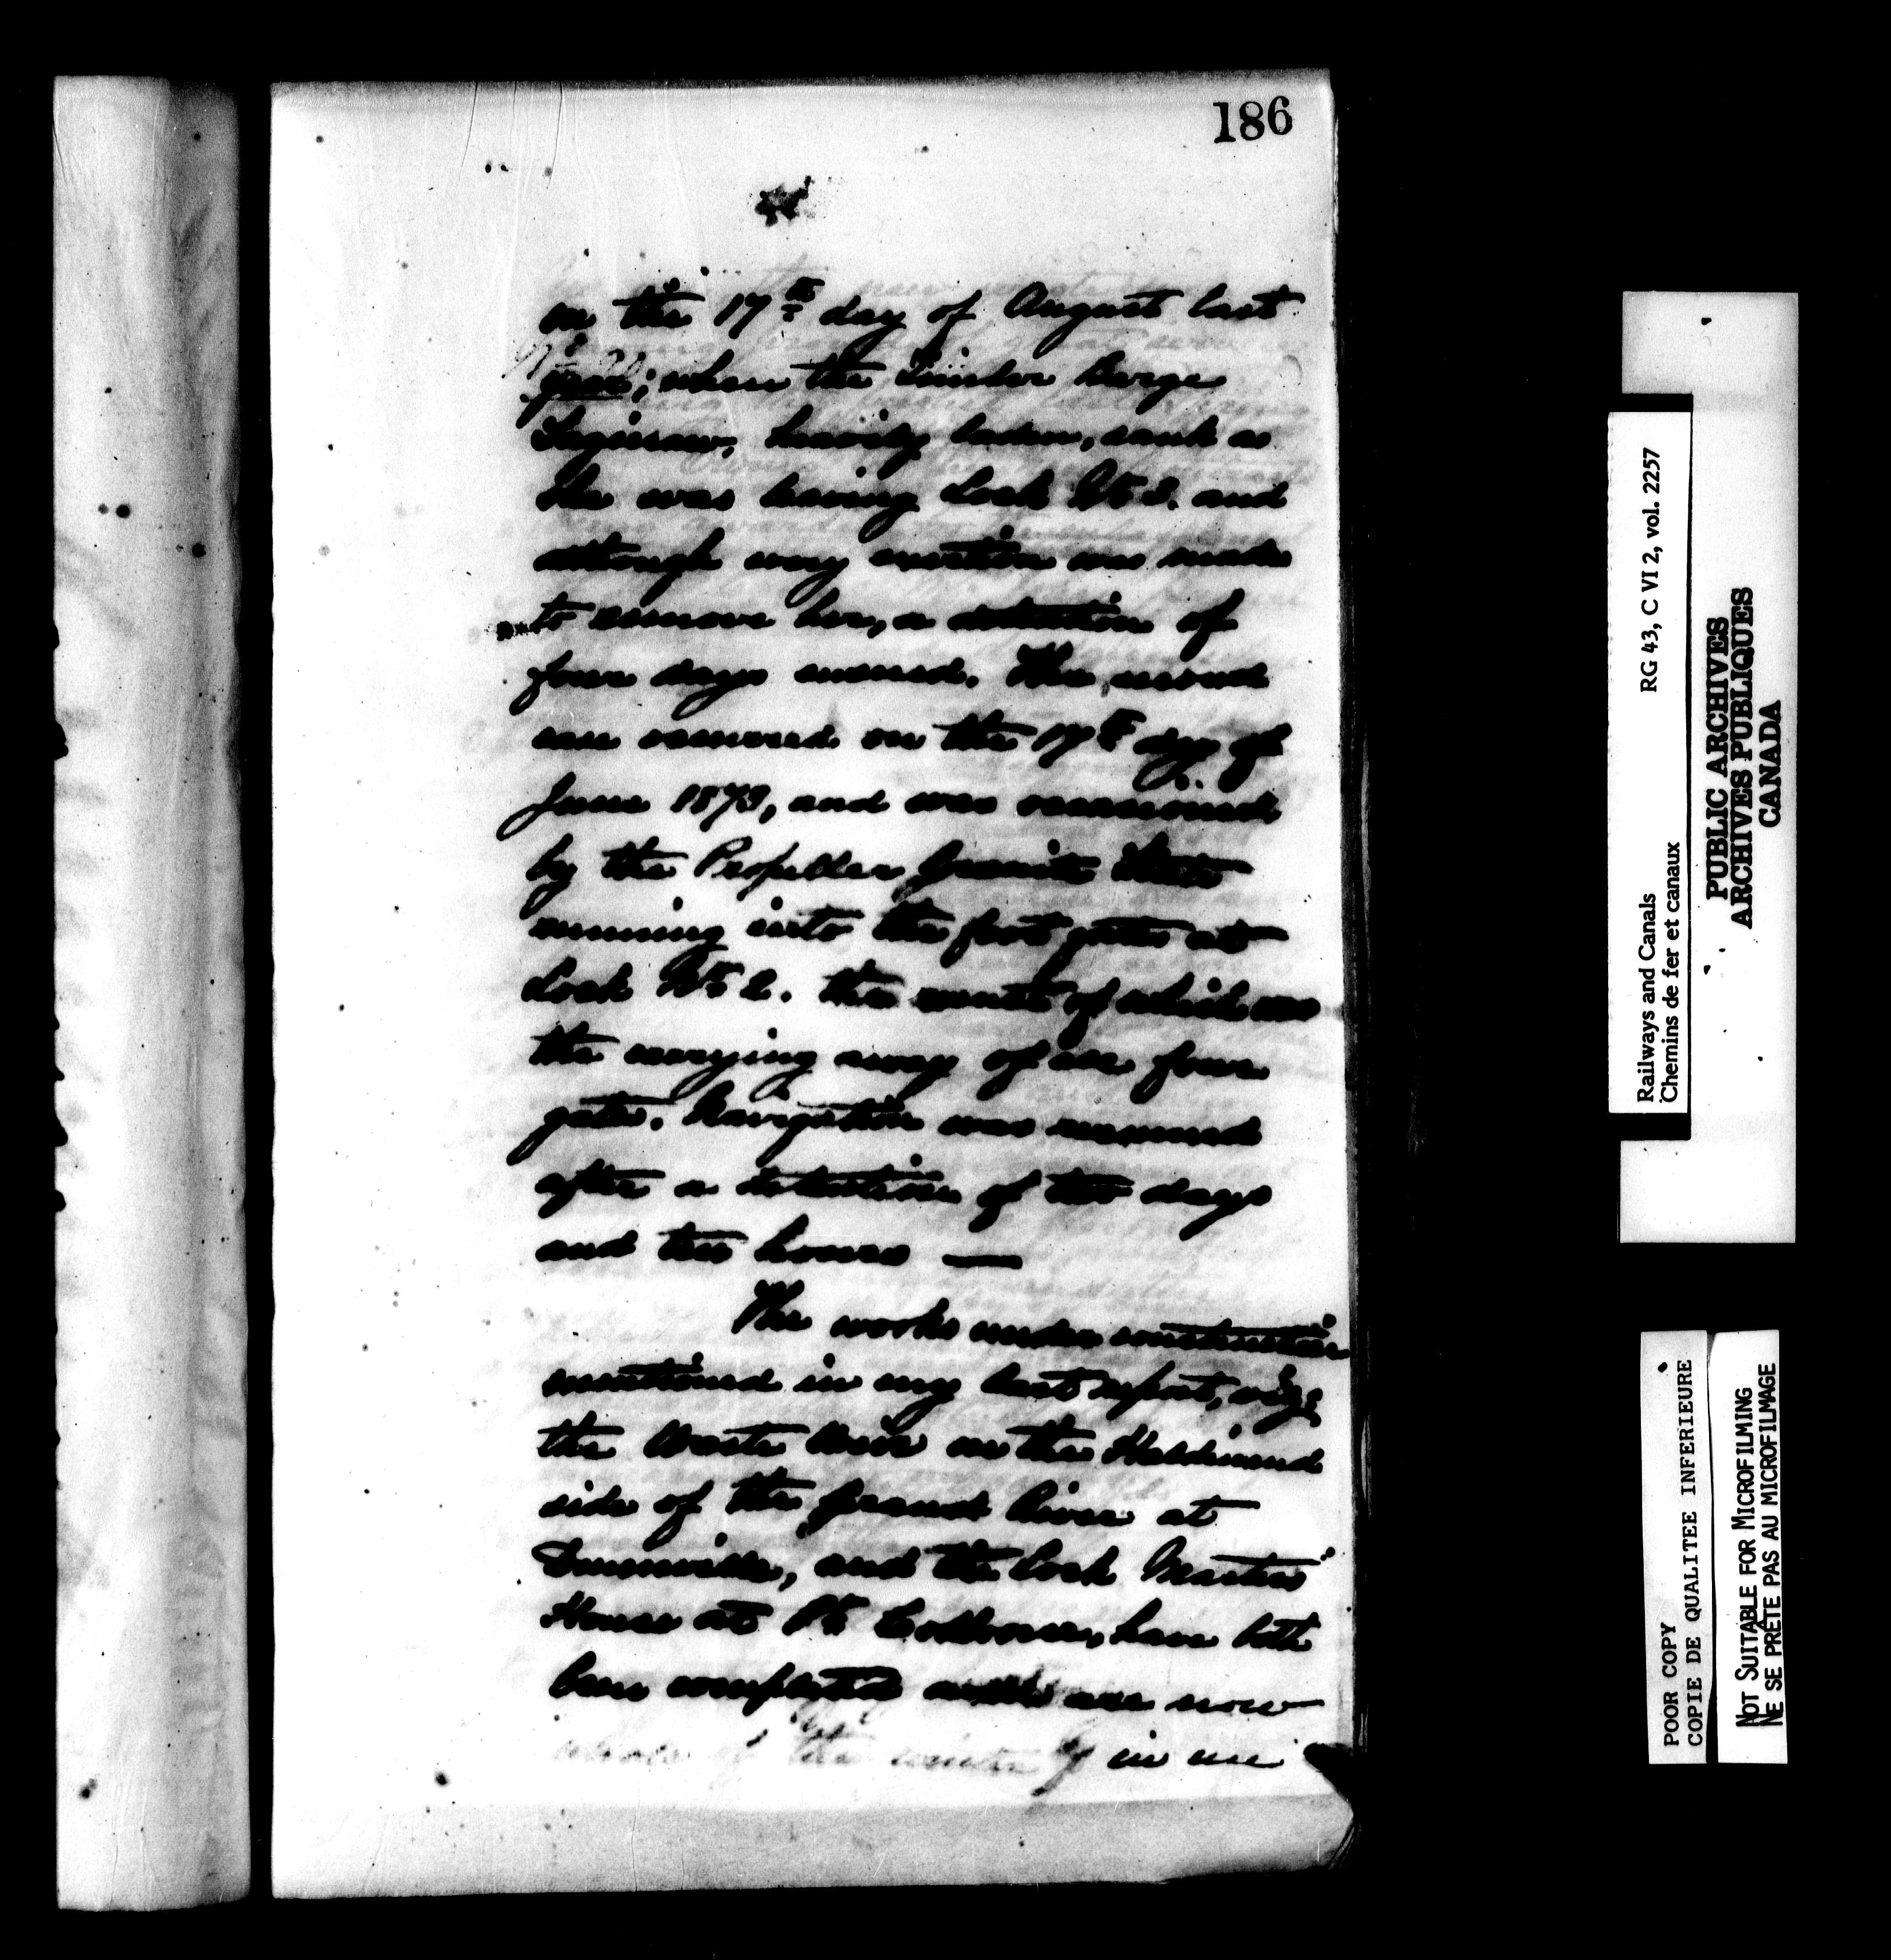 186
on the 17th day of August last
year; when the Timber Barge
Saginaw, heavily laden, sank as
she was leaving Lock No 3. and
although every exertion was made
to remove her, a detention of
four days ensued. The second
one occurred on the 17th day of
June 1873, and was occasioned
by the Propeller Granite State
running into the foot gates at
Lock No 2. the result of which was
the carrying away of all four
gates. Navigation was resumed
after a detention of two days
and ten hours —
The works under construction
mentioned in my last report, viz:
the Waste Weir on the Haldimand
side of the Grand River at
Dunnville, and the Lock Masters'
House at Pt Colborne, have both
been completed and are now
in use
Railways and Canals RG 43, C VI 2, vol. 2257
Chemins de fer et canaux
PUBLIC ARCHIVES
ARCHIVES PUBLIQUES
CANADA
POOR COPY
COPIE DE QUALITEE INFERIEURE
NOT SUITABLE FOR MICROFILMING
NE SE PRÊTE PAS AU MICROFILMAGE